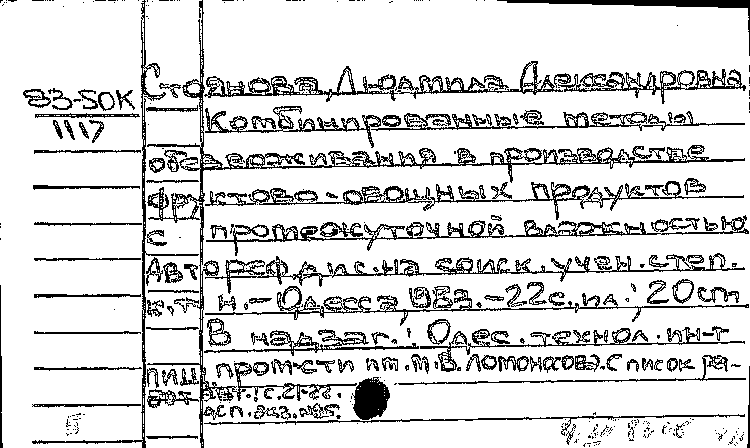 Стоянова, Людмила Александровна
83-50К
1117
Комбинированные методы
обезвоживания в производстве
фруктово-овощных продуктов
с промежуточной влажностью
Автореф.дис.на соиск.учен.степ.
к.т.н.-Одесса,1983.-22с.,ил.; 20см
В надзаг.: Одес.технол.ин-т
пищ.пром-сти им.М.В.Ломоносова.Список ра-
бот авт.: с.21-22.